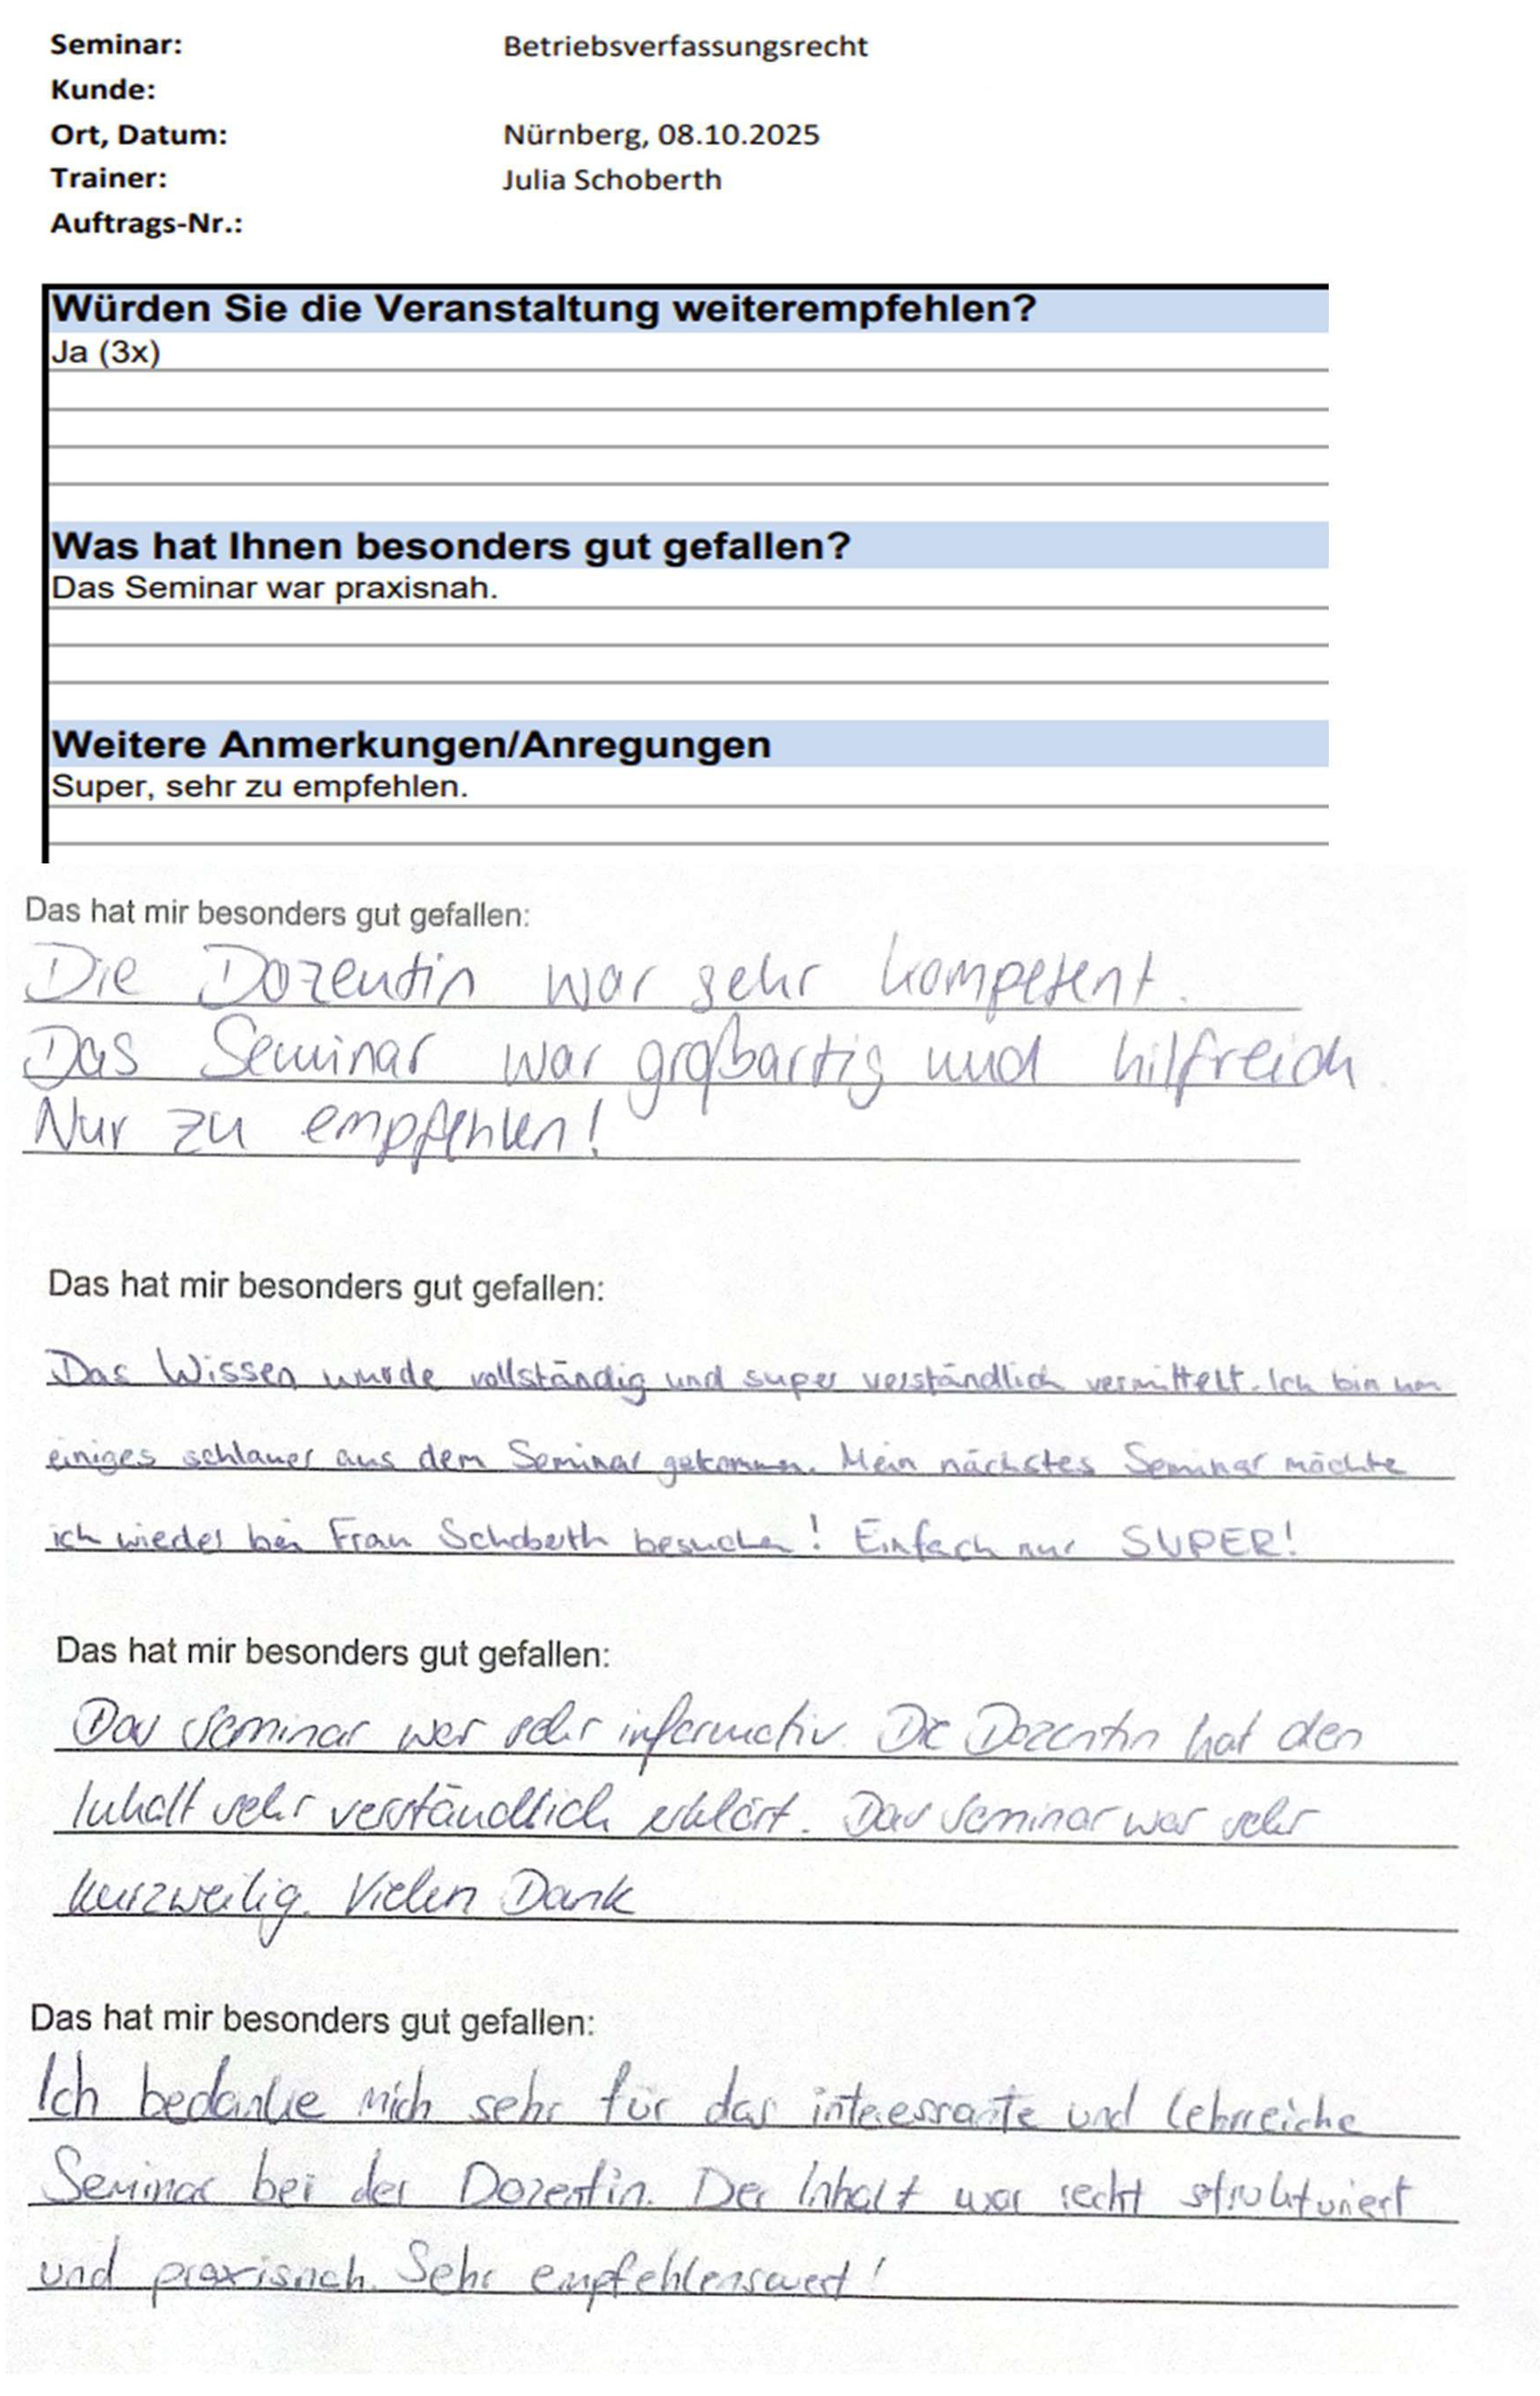 Seminar: Betriebsverfassungsrecht
Kunde:
Ort, Datum: Nürnberg, 08.10.2025
Trainer: Julia Schoberth
Auftrags-Nr.:
Würden Sie die Veranstaltung weiterempfehlen?
Ja (3x)
Was hat Ihnen besonders gut gefallen?
Das Seminar war praxisnah.
Weitere Anmerkungen/Anregungen
Super, sehr zu empfehlen.
Das hat mir besonders gut gefallen:
Die Dozentin war sehr kompetent.
Das Seminar war großartig und hilfreich.
Nur zu empfehlen!
Das hat mir besonders gut gefallen:
Das Wissen wurde vollständig und super verständlich vermittelt. Ich bin um
einiges schlauer aus dem Seminar gekommen. Mein nächstes Seminar möchte
ich wieder bei Frau Schoberth besuchen! Einfach nur SUPER!
Das hat mir besonders gut gefallen:
Das Seminar war sehr informativ. Die Dozentin hat den
Inhalt sehr verständlich erklärt. Das Seminar war sehr
kurzweilig. Vielen Dank
Das hat mir besonders gut gefallen:
Ich bedanke mich sehr für das interessante und lehrreiche
Seminar bei der Dozentin. Der Inhalt war recht strukturiert
und praxisnah. Sehr empfehlenswert!